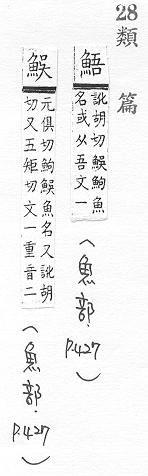 28類篇
䱍
訛胡切鯃鮈魚
名或从吾文一
(魚部.P.427)
鯸
元俱切鮈鯸魚名又訛胡
切又五矩切文一重音二
(魚部.P.427)